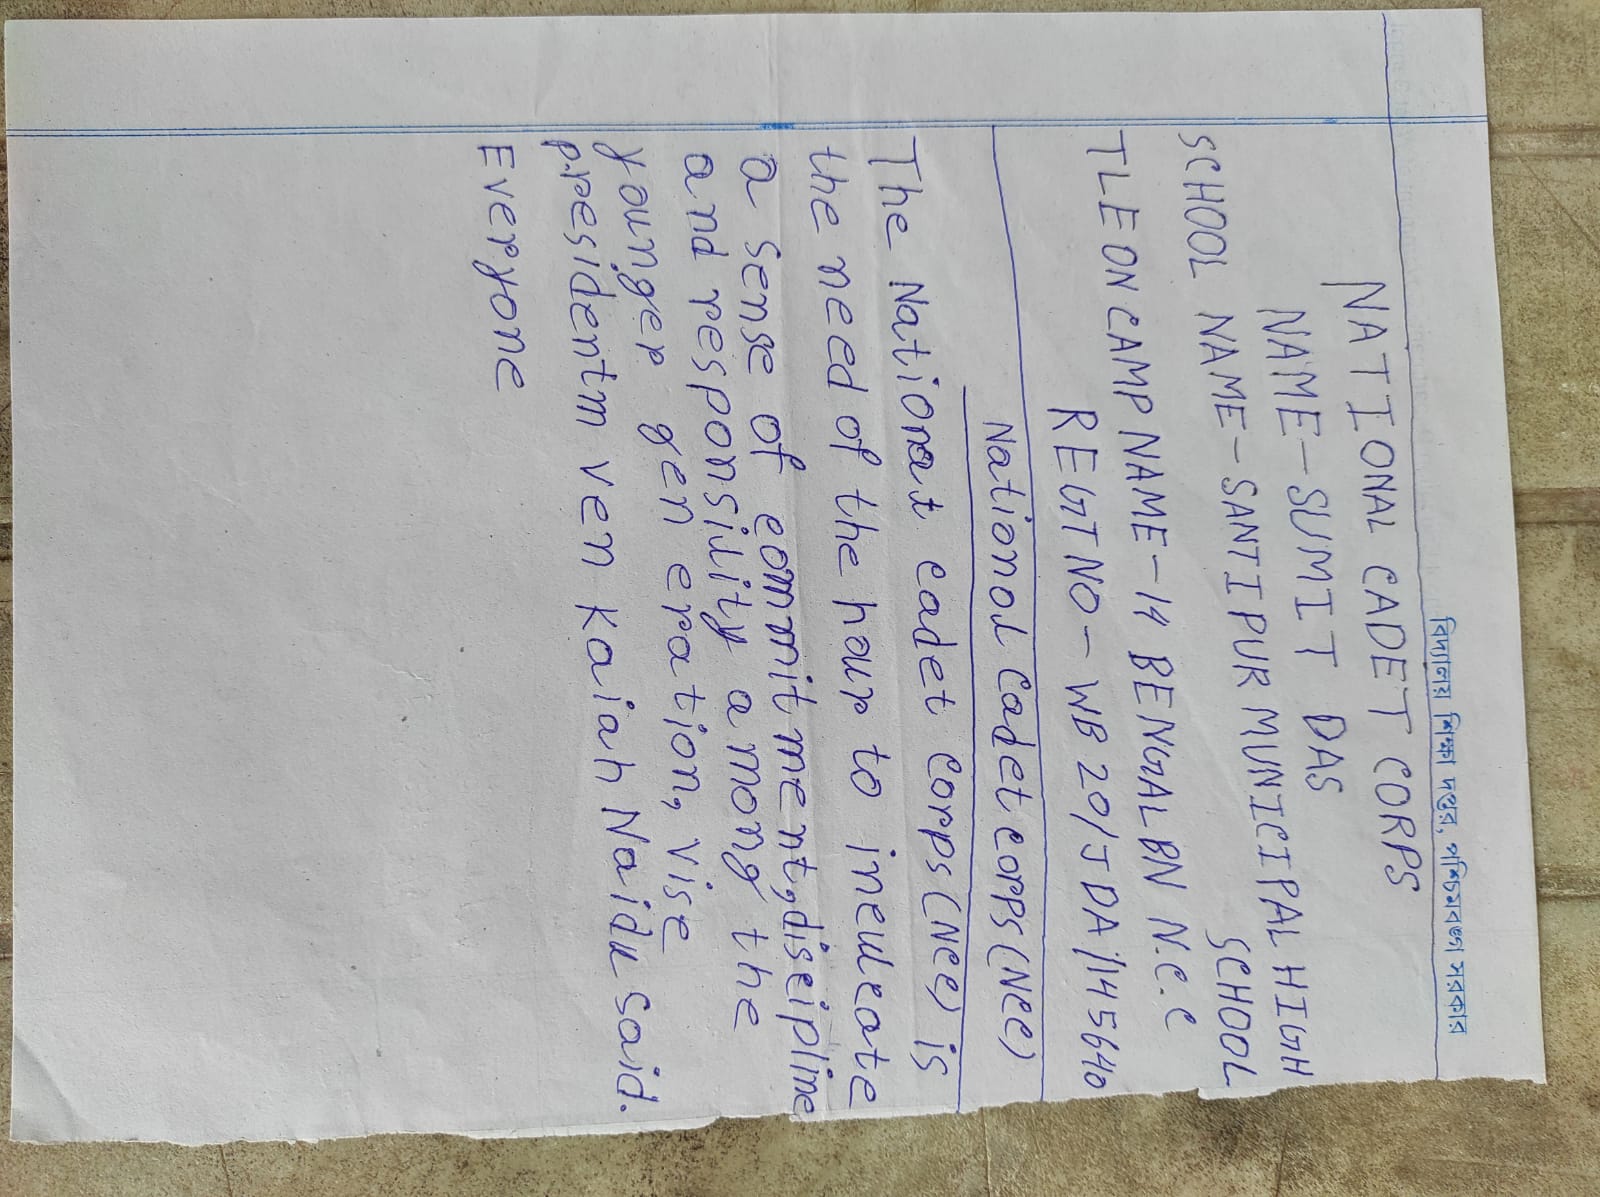 বিদ্যালয় শিক্ষা দপ্তর, পশ্চিমবঙ্গ সরকার
NATIONAL CADET CORPS
NAME-SUMIT DAS
SCHOOL NAME-SANTIPUR MUNICIPAL HIGH
SCHOOL
TLEON CAMP NAME-14 BENGAL BN N.C.C
REGT NO-WB 20/JDA/145640
National Cadet corps (Ncc)
The National cadet corps (Ncc) is
the need of the hour to inculcate
a sense of commitment, discipline
and responsility among the
younger generation, vise
presidentm ven Kaiah Naidu said.
Everyone